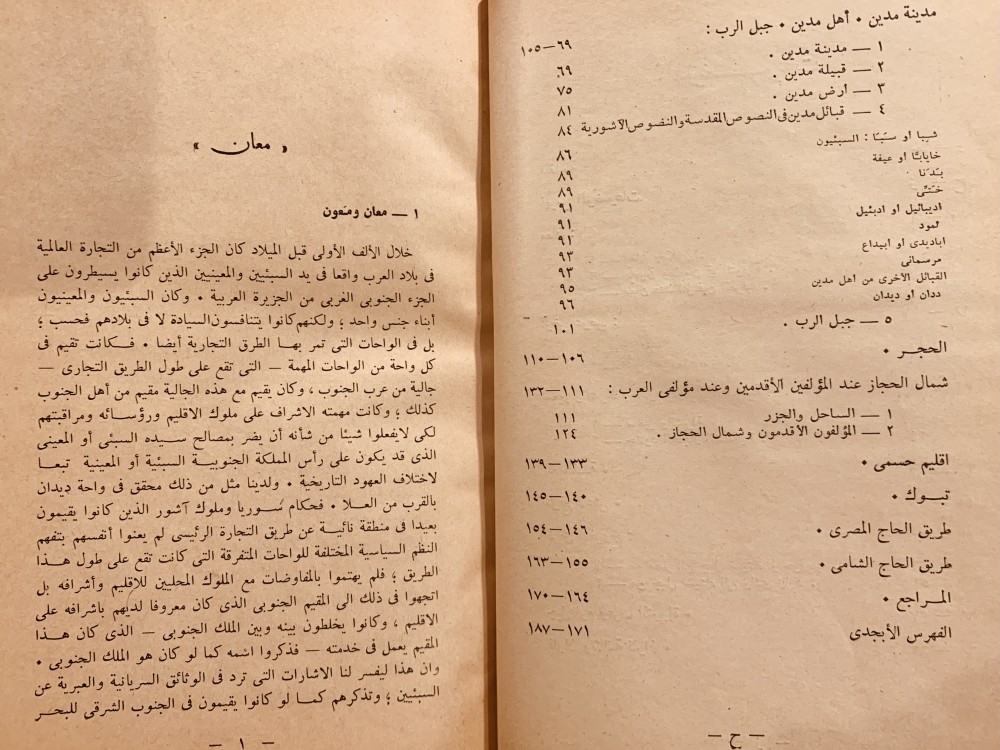 مدينة مدين • أهل مدين • جبل الرب :
٦٩—١٠٥
١ — مدينة مدين .
٦٩
٢ — قبيلة مدين .
٧٥
٣ — ارض مدين .
٨١
٤ — قبائل مدين فى النصوص المقدسة والنصوص الآشورية
٨٤
شيبا أو سبَبَا : السبئيون
٨٦
خايابّا أو عيفة
٨٩
بَدَنا
٨٩
خَتتِى
٩١
ادبيائيل أو ادبئيل
٩١
ثمود
٩١
اباديدى أو أبيداع
٩٣
مرسمانى
٩٣
القبائل الأخرى من أهل مدين
٩٥
ددان أو ديدان
٩٦
٥ — جبل الرب .
١٠١
الحجر •
١٠٦—١١٠
شمال الحجاز عند المؤلفين الأقدمين وعند مؤلفى العرب :
١١١—١٣٢
١ — الساحل والجزر
١١١
٢ — المؤلفون الأقدمون وشمال الحجاز .
١٢٤
اقليم حسمى •
١٣٣—١٣٩
تبوك •
١٤٠—١٤٥
طريق الحاج المصرى •
١٤٦—١٥٤
طريق الحاج الشامى •
١٥٥—١٦٣
المراجع •
١٦٤—١٧٠
الفهرس الأبجدى
١٧١—١٨٧
— ح —
« معان »
١ — معان ومَعون
خلال الألف الأولى قبل الميلاد كان الجزء الأعظم من التجارة العالمية
فى بلاد العرب واقعا فى يد السبئيين والمعينيين الذين كانوا يسيطرون على
الجزء الجنوبى الغربى من الجزيرة العربية • وكان السبئيون والمعينيون
أبناء جنس واحد ؛ ولكنهم كانوا يتنافسون السيادة لا فى بلادهم فحسب ؛
بل فى الواحات التى تمر بها الطرق التجارية أيضا • فكانت تقيم فى
كل واحة من الواحات المهمة — التى تقع على طول الطريق التجارى —
جالية من عرب الجنوب ، وكان يقيم مع هذه الجالية مقيم من أهل الجنوب
كذلك ؛ وكانت مهمته الاشراف على ملوك الاقليم ورؤسائه ومراقبتهم
لكى لايفعلوا شيئا من شأنه أن يضر بمصالح سيده السبئى أو المعينى
الذى قد يكون على رأس المملكة الجنوبية السبئية أو المعينية تبعا
لاختلاف العهود التاريخية • ولدينا مثل من ذلك محقق فى واحة ديدان
بالقرب من العلا • فحكام سوريا وملوك آشور الذين كانوا يقيمون
بعيدا فى منطقة نائية عن طريق التجارة الرئيسى لم يعنوا أنفسهم بتفهم
النظم السياسية المختلفة للواحات المتفرقة التى كانت تقع على طول هذا
الطريق ؛ فلم يهتموا بالمفاوضات مع الملوك المحليين للاقليم وأشرافه بل
اتجهوا فى ذلك الى المقيم الجنوبى الذى كان معروفا لديهم باشرافه على
الاقليم ، وكانوا يخلطون بينه وبين الملك الجنوبى — الذى كان هذا
المقيم يعمل فى خدمته — فذكروا اسمه كما لو كان هو الملك الجنوبى •
وان هذا ليفسر لنا الاشارات التى ترد فى الوثائق السريانية والعبرية عن
السبئيين ؛ وتذكرهم كما لو كانوا يقيمون فى الجنوب الشرقى للبحر
— ١ —